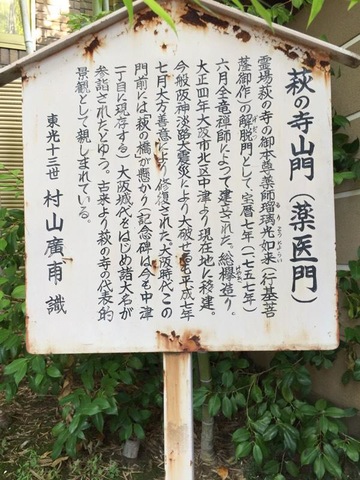 萩の寺山門（薬医門）
霊場萩の寺の御本尊薬師瑠璃光如来（行基菩
薩御作）の解脱門として、宝暦七年（一七五七年）
六月全竜禅師によって建立された。総欅造り。
大正四年大阪市北区中津より現在地に移建。
今般阪神淡路大震災により大破せるも平成七年
七月大方善意によって修復された。大阪時代この
門前には「萩の橋」が懸かり（記念碑は今も中津
一丁目に現存する）大阪城代をはじめ諸大名が
参詣されたとゆう。古来より萩の寺の代表的
景観として親しまれている。
東光十三世 村山廣甫 識